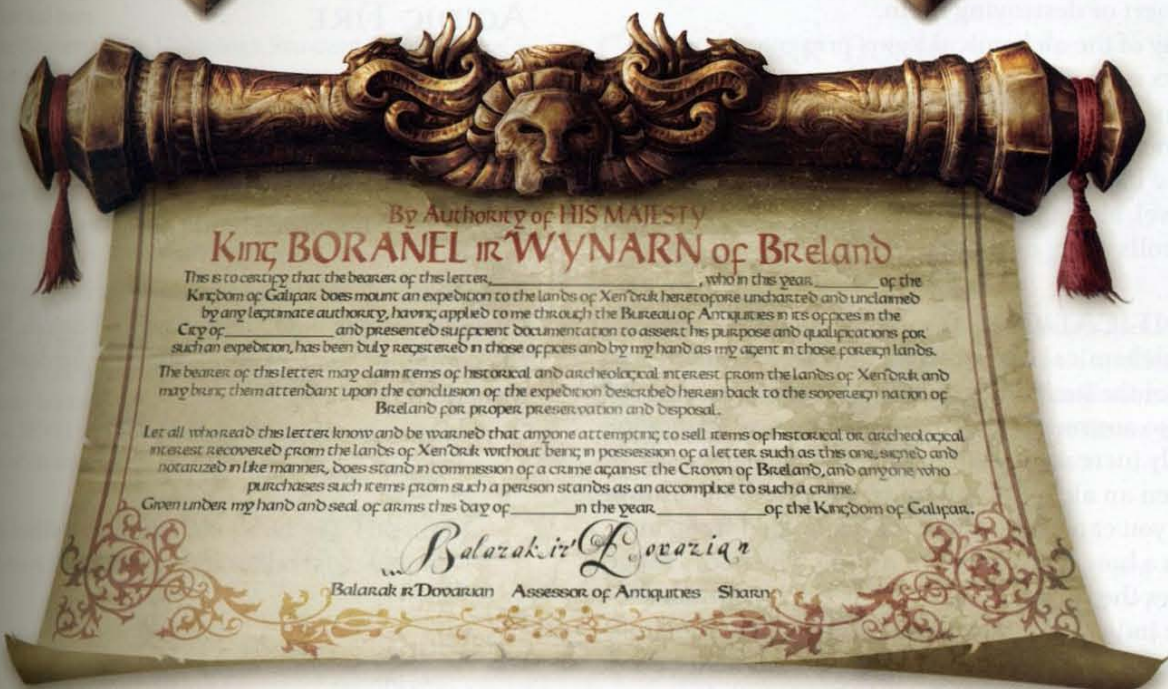 By Authority of HIS MAJESTY
King BORANEL ir'WYNARN of Breland
This is to certify that the bearer of this letter,____________________, who in this year________of the
Kingdom of Galifar does mount an expedition to the lands of Xen'drik heretofore uncharted and unclaimed
by any legitimate authority, having applied to me through the Bureau of Antiquities in its offices in the
City of____________and presented sufficient documentation to assert his purpose and qualifications for
such an expedition, has been duly registered in those offices and by my hand as my agent in those foreign lands.
The bearer of this letter may claim items of historical and archeological interest from the lands of Xen'drik and
may bring them attendant upon the conclusion of the expedition described herein back to the sovereign nation of
Breland for proper preservation and disposal.
Let all who read this letter know and be warned that anyone attempting to sell items of historical or archeological
interest recovered from the lands of Xen'drik without being in possession of a letter such as this one, signed and
notarized in like manner, does stand in commission of a crime against the Crown of Breland, and anyone who
purchases such items from such a person stands as an accomplice to such a crime.
Given under my hand and seal of arms this day of________in the year____________of the Kingdom of Galifar.
Balarak ir' Dovarian
Balarak ir'Dovarian Assessor of Antiquities Sharn